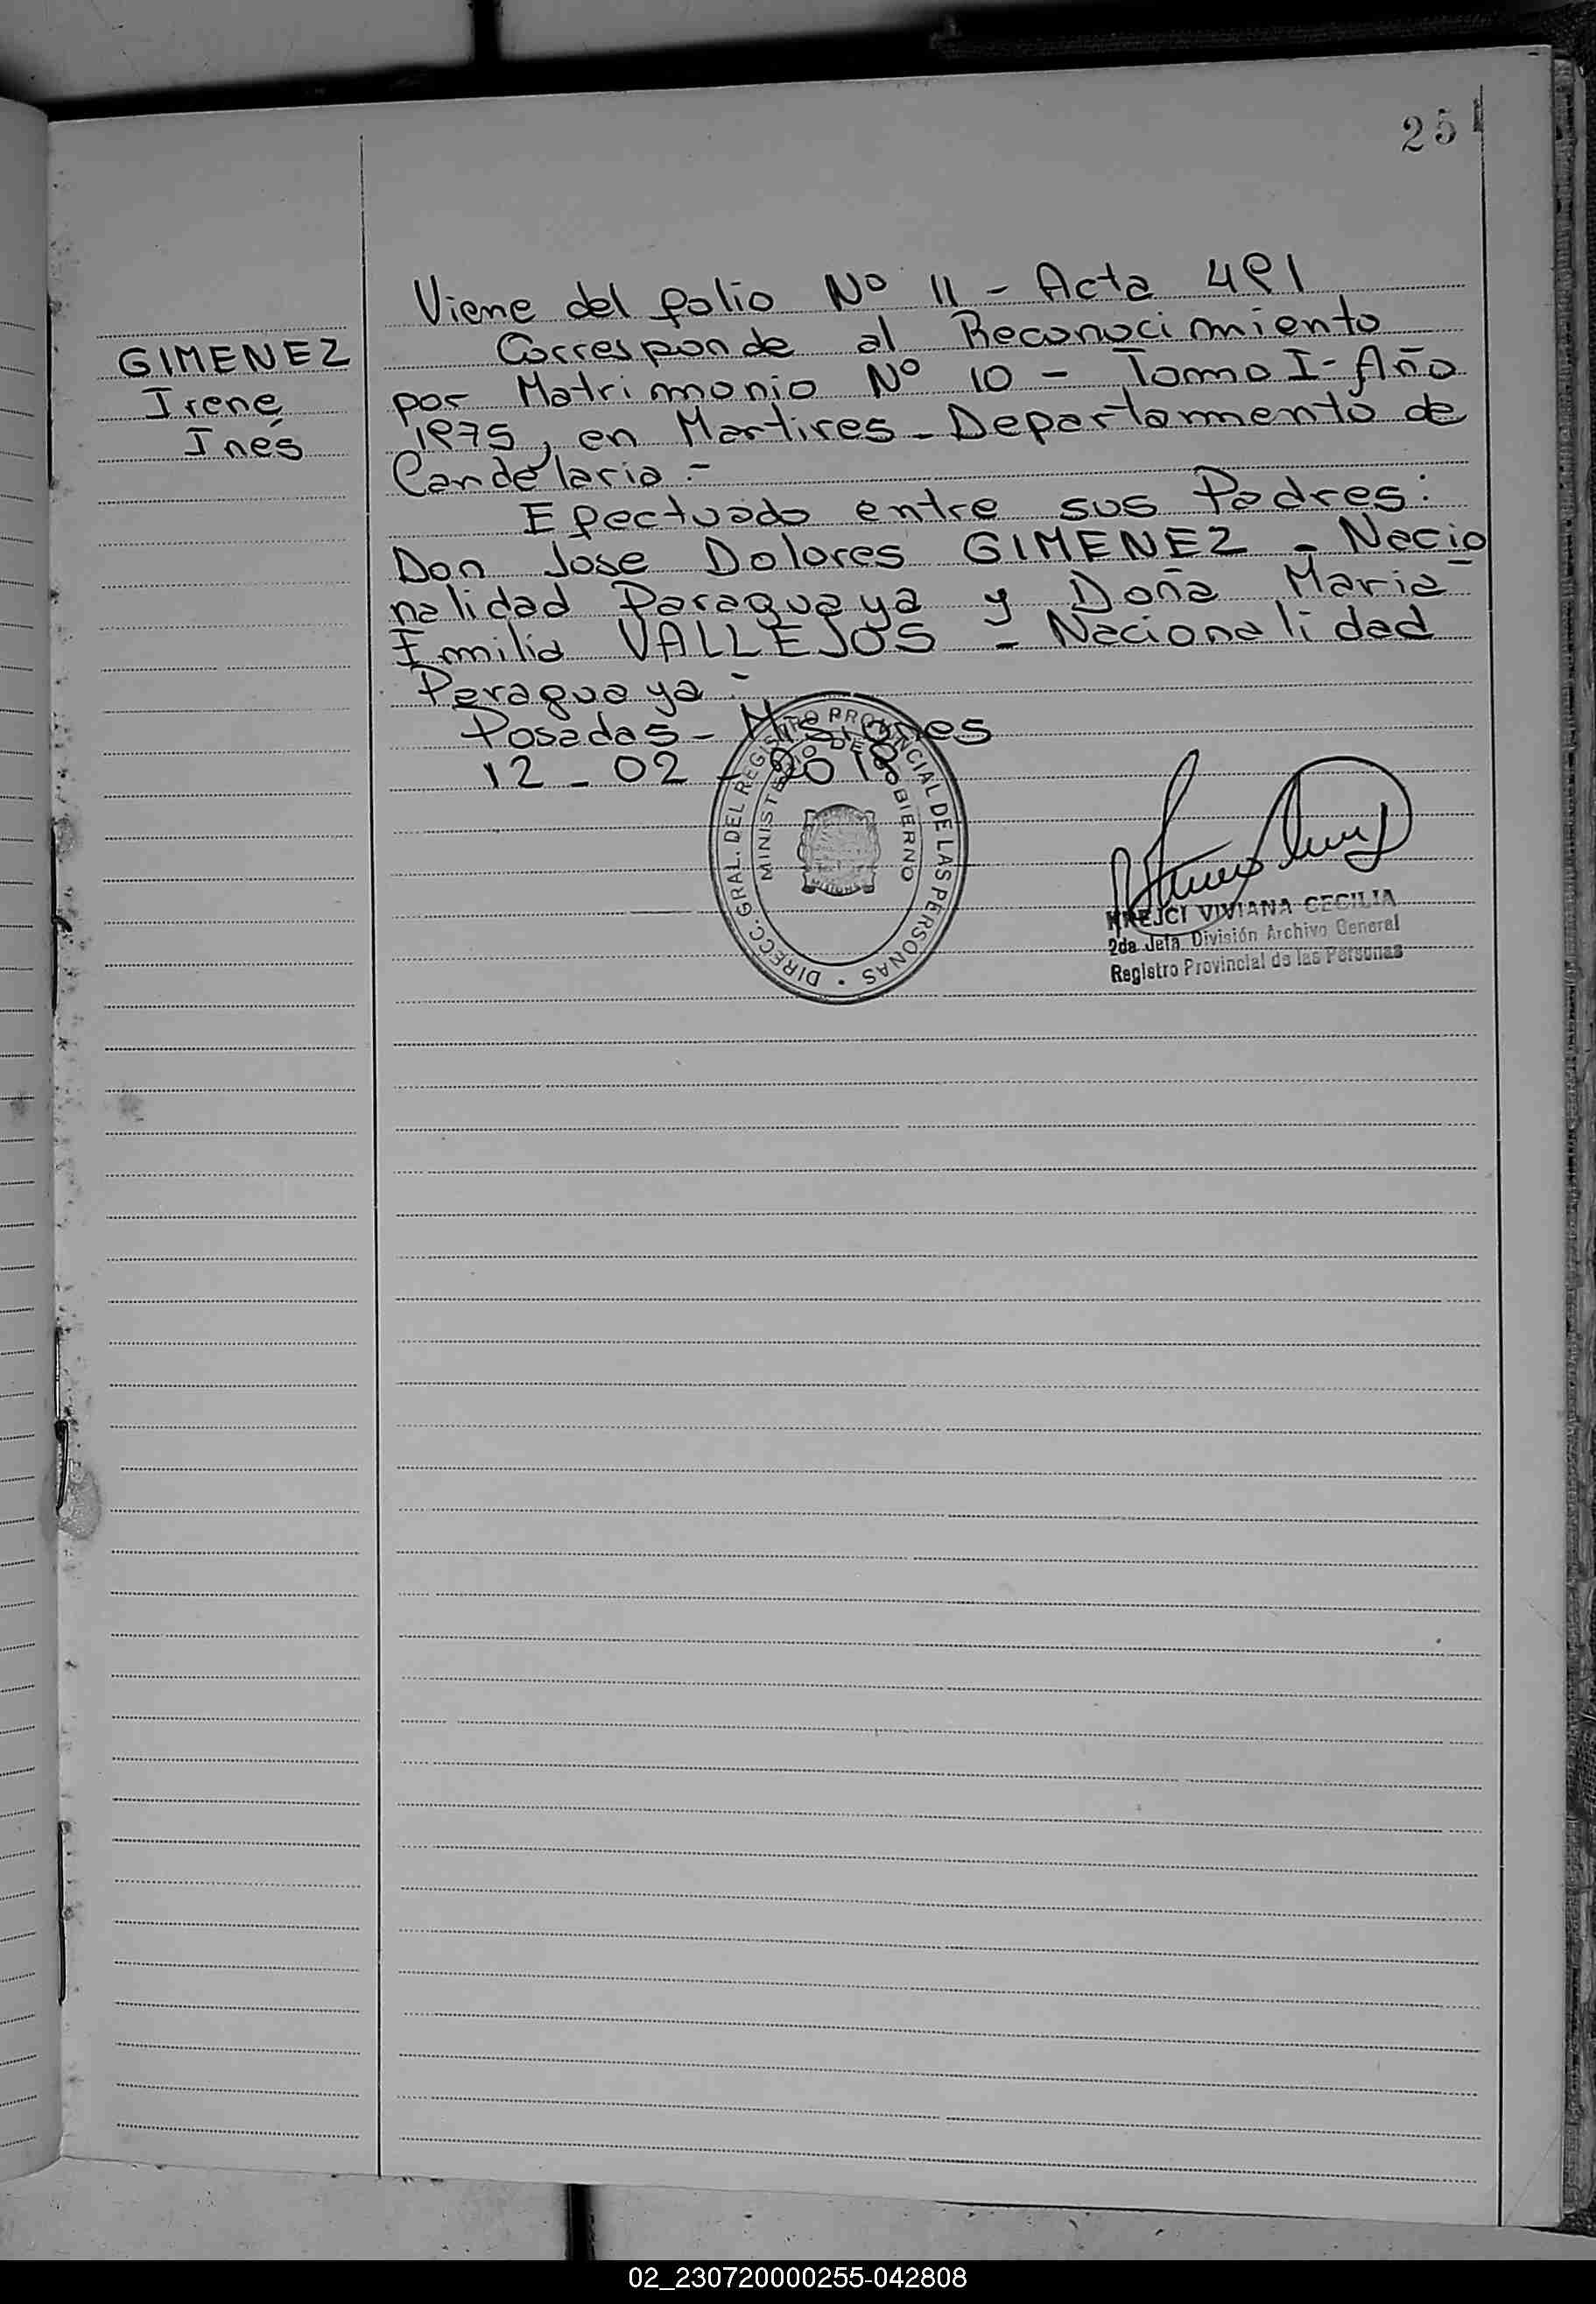 251
Viene del folio Nº 11 - Acta 491
GIMENEZ
Irene
Inés
Corresponde al Reconocimiento
por Matrimonio Nº 10 - Tomo I - Año
1975, en Martires - Departamento de
Candelaria.-
Efectuado entre sus Padres:
Don Jose Dolores GIMENEZ - Nacio
nalidad Paraguaya y Doña Maria
Emilia VALLEJOS - Nacionalidad
Paraguaya.-
Posadas - Misiones
12 - 02 - 2018
DIRECC. GRAL. DEL REGISTRO PROVINCIAL DE LAS PERSONAS
MINISTERIO DE GOBIERNO
MISIONES
KREJCI VIVIANA CECILIA
2da Jefa División Archivo General
Registro Provincial de las Personas
02_230720000255-042808